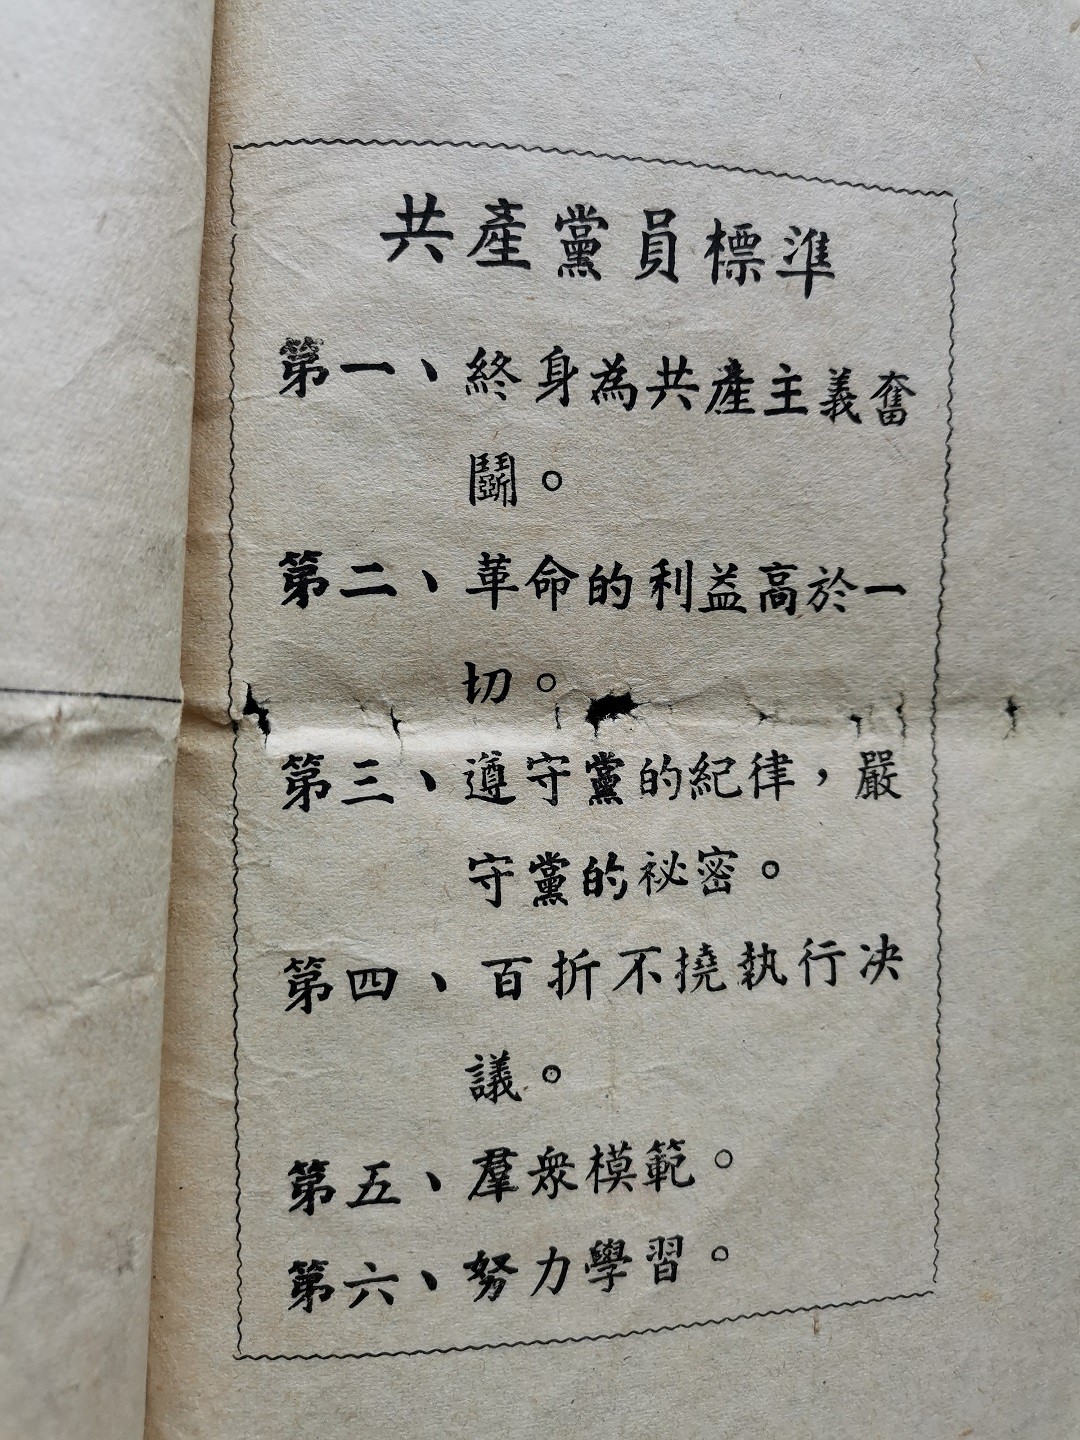 共產黨員標準
第一、終身為共產主義奮
鬭。
第二、革命的利益高於一
切。
第三、遵守黨的紀律，嚴
守黨的祕密。
第四、百折不撓執行决
議。
第五、羣衆模範。
第六、努力學習。